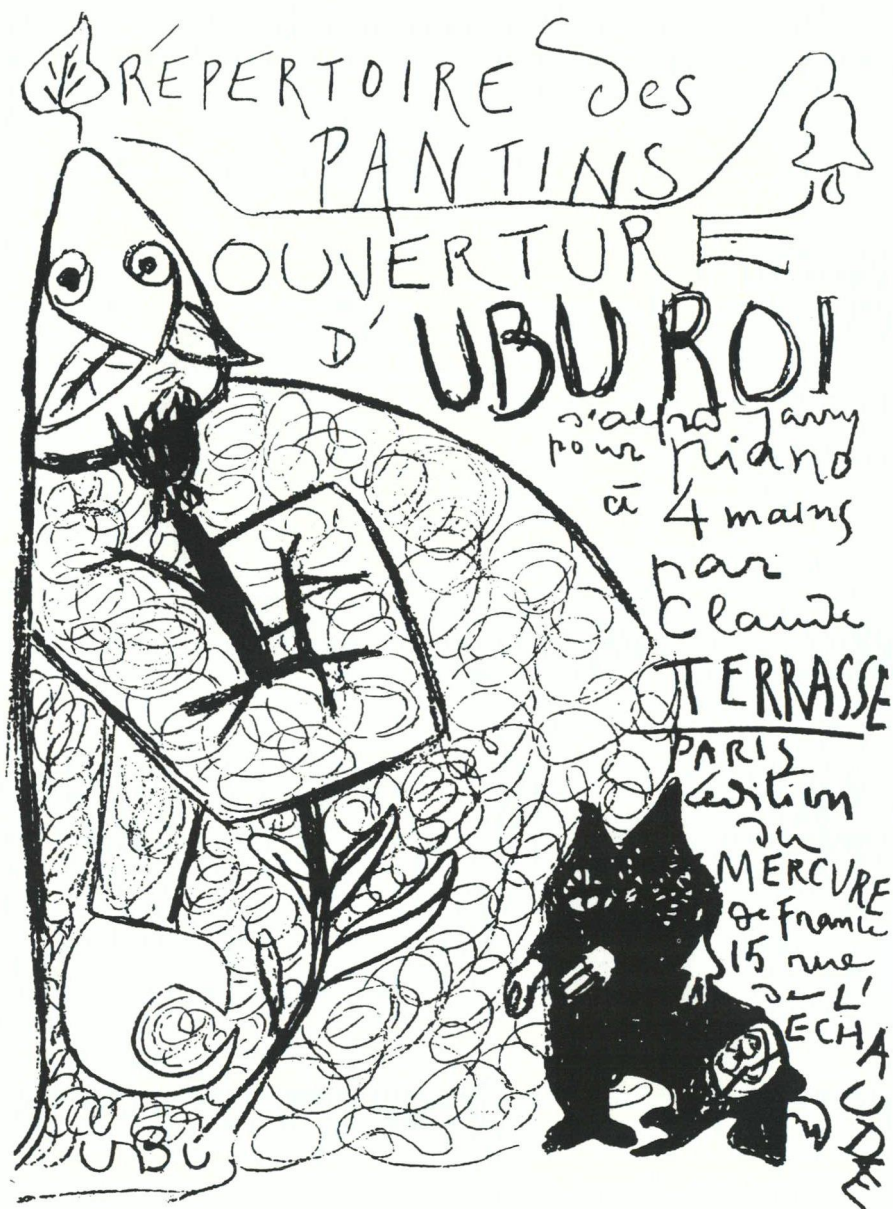 RÉPERTOIRE des
PANTINS
OUVERTURE
D' UBU ROI
d'alfred Jarry
pour piano
à 4 mains
par
Claude
TERRASSE
PARIS
édition
du
MERCVRE
de France
15 rue
de L'
ECHAUDÉ
UBU